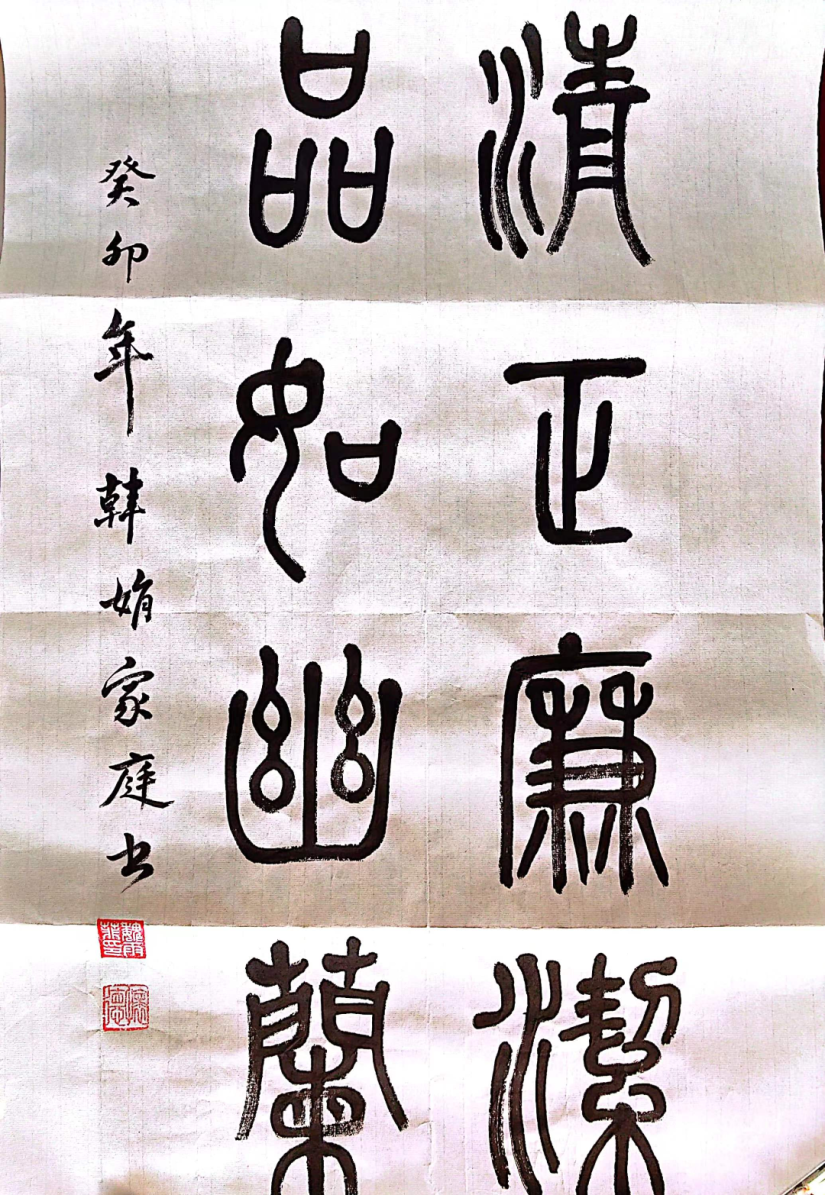 清正廉潔
品如幽蘭
癸卯年韩娟家庭书